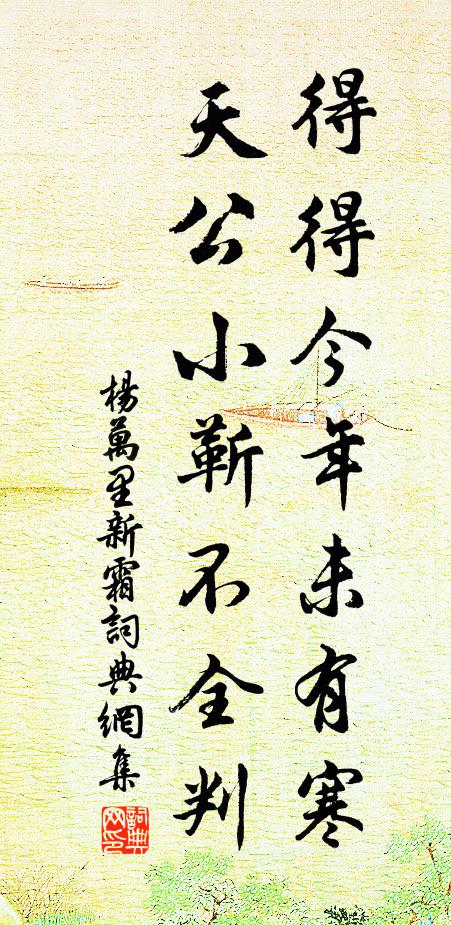 得得今年未有寒
天公小靳不全判
楊萬里新霜詞典網集
詞典
网印